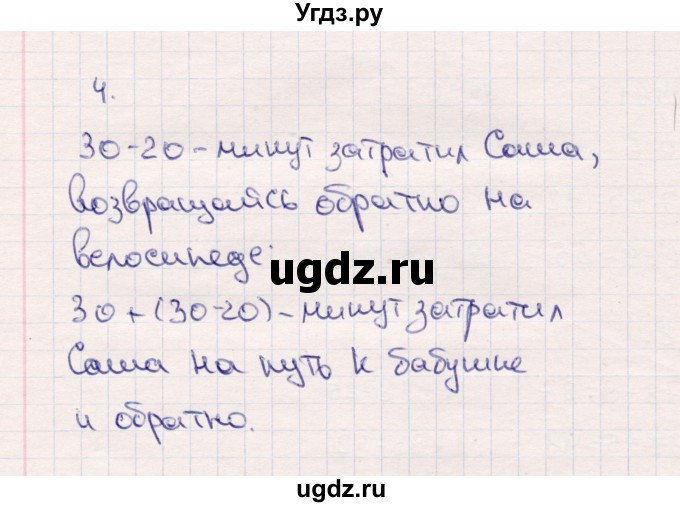 Угдз.ру
4.
30-20 - минут затратил Саша,
возвращаясь обратно на
велосипеде.
ugdz.ru
30+(30-20) - минут затратил
Саша на путь к бабушке
и обратно.
ugdz.ru